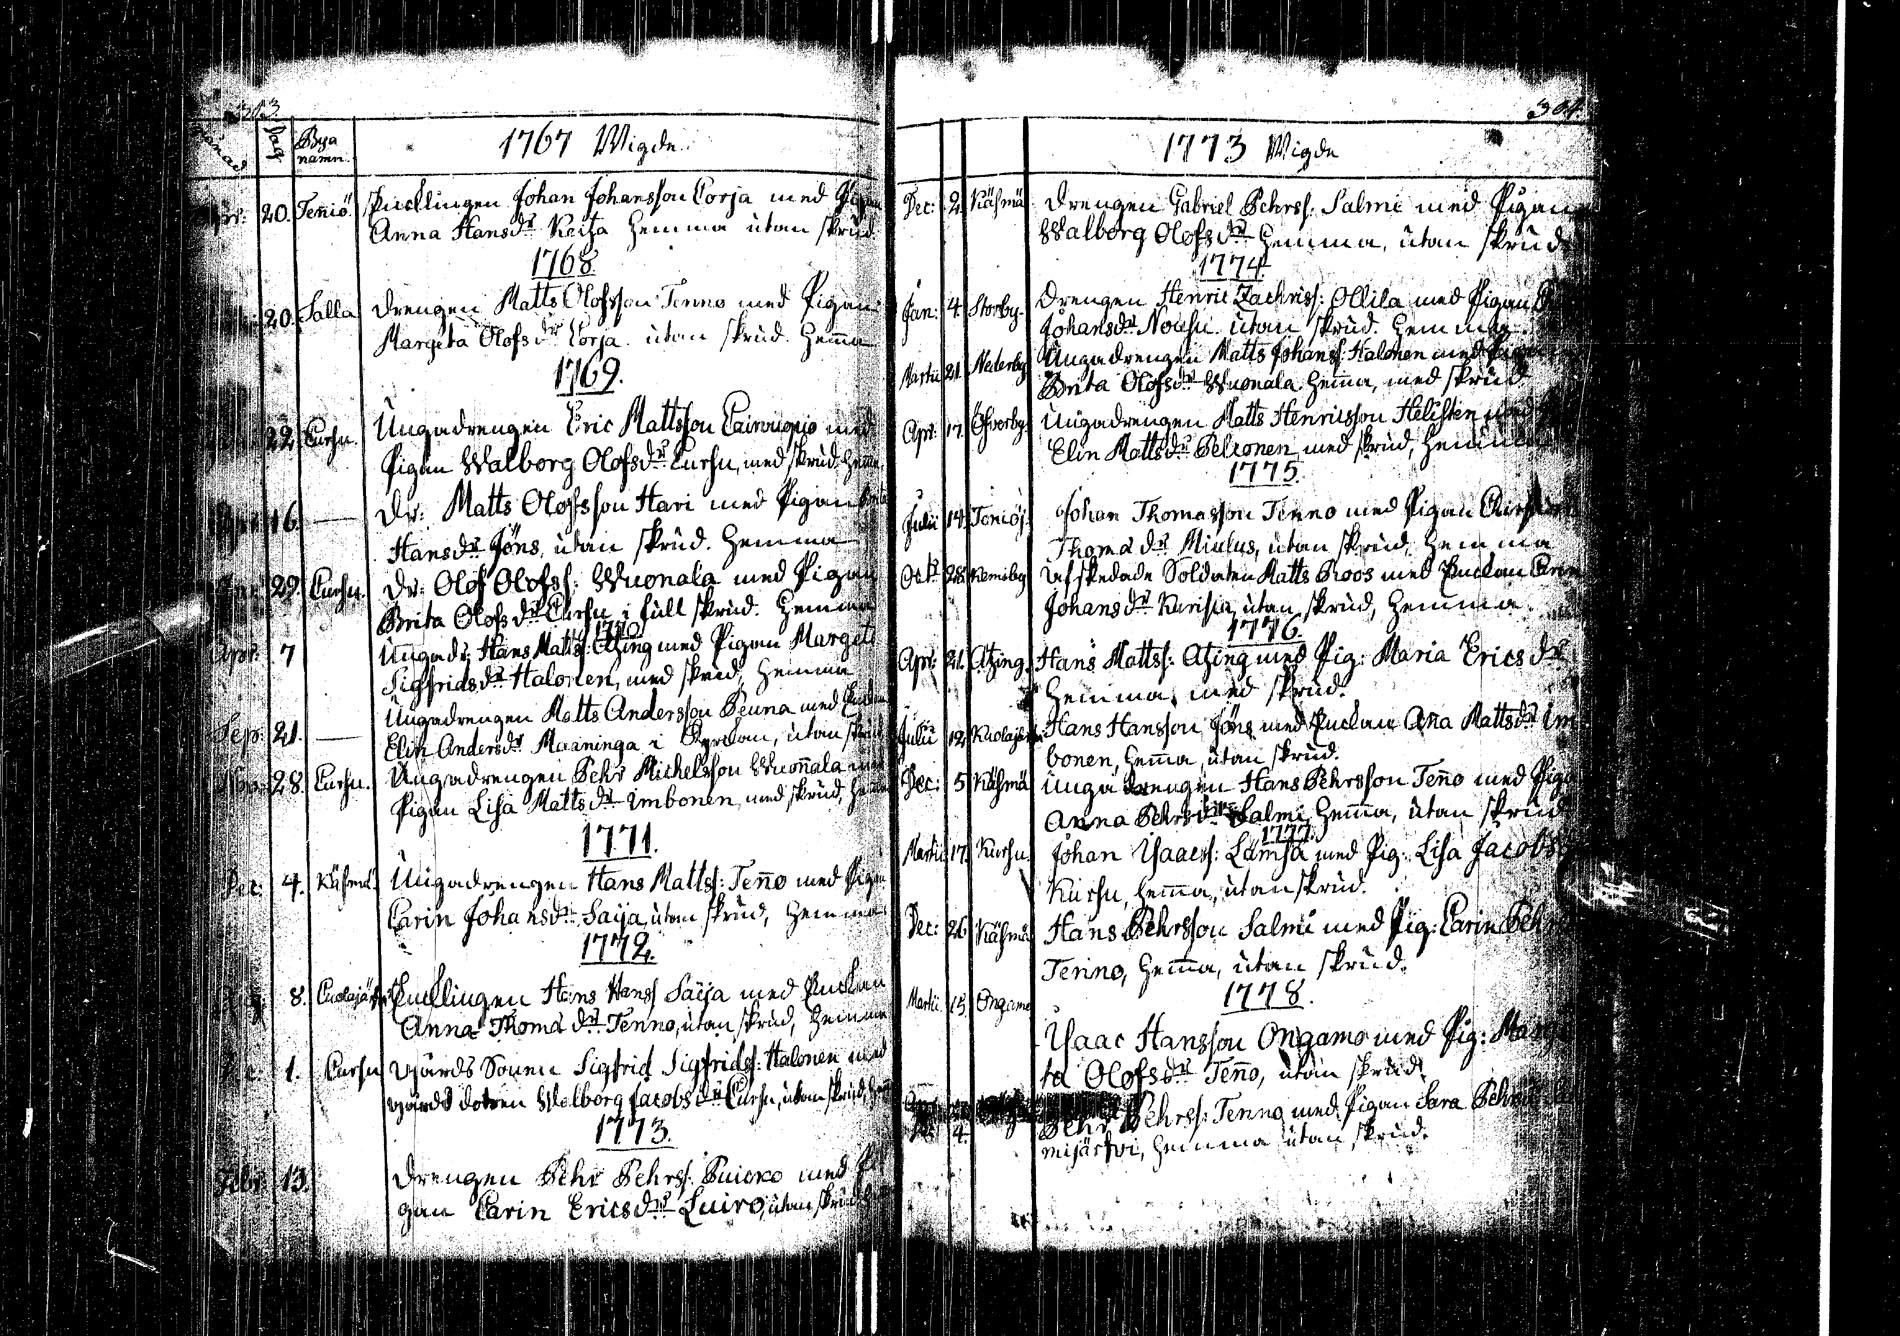 303.
Månad Dag Bya namn. 1767 Wigde.
20. Teniö. Enchlingen Johan Johansson Corja med Pigan
Anna Hansdr Keisa hemma utan skrud.
1768
20. Salla Drengen Matts Olofsson Tenno med Pigan
Margeta Olofsdr Corja utan skrud. hema
1769.
22 Cursu. Ungadrengen Eric Mattsson Cairinopio med
Pigan Walborg Olofsdr Cursu, med skrud. hema.
16. — Dr: Matts Olofsson Hari med Pigan Brita
Hansdr Jöns, utan skrud. hemma
29. Cursu. Dr: Olof Olofss: Wuonala med Pigan
Brita Olofsdr Cursu i full skrud. hemma
1770
Apr: 7 Ungadr: Hans Mattss: Atzing med Pigan Margeta
Sigfridsdr Halonen, med skrud, hemma
Sep: 21. — Ungadrengen Matts Andersson Peuna med
Elin Andersdr Maaninga i utan skrud
28. Cursu. Ungadrengen Pehr Michelsson Wuonala med
Pigan Lisa Mattsdr Imbonen, med skrud, hema
1771.
Dec: 4. Käsmä. Ungadrengen Hans Mattss: Teno med Pigan
Carin Johansdr Saija, utan skrud, hemma
1772.
8. Cuolajärfvi Enchlingen Hans Hanss Saija med Enckan
Anna Thomä dr Tenno, utan skrud, hemma
1. Cursu wärds Sonen Sigfrid Sigfridss: Halonen med
wärds dotren Walborg Jacobsdr Cursu, utan skrud,
1773.
Febr. 13. Drengen Pehr Pehrss. Puicko med Pi
gan Carin Ericsdr Luiro, utan skrud
304.
1773 Wigde
Dec: 2. Käsmä Drengen Gabriel Pehrss: Salmi med Pigan
Walborg Olofsdr hemma, utan skrud
1774.
Jan: 4. Storby. Drengen Henric Zachriss: Ollila med Pigan
Johansdr Nousu utan skrud. hemma.
Martii 21. Nederby Ungadrengen Matts Johanss: Halonen med Pigan
Brita Olofsdr Wuonala hema, med skrud.
Apr: 17. Öfverby. Ungadrengen Matts Henricsson Helisten med
Elin Mattsdr Pelkonen med skrud, hemma
1775.
Julii 14. Teniöj. Johan Thomasson Tenno med Pigan
Thomä dr Miulus, utan skrud, hemma
Oct: 28. Kemiby afskedade Soldaten Matts Roos med Enckan Carin
Johansdr utan skrud, hemma.
1776.
Apr: 21. Atzing. Hans Mattss: Atzing med Pig: Maria Ericsdr
hemma, med skrud.
Julii 12. Kuolajärfvi Hans Hansson Jöns med Enckan Ana Mattsdr Im
bonen, hema, utan skrud.
Dec: 5 Käsmä Unga drengen Hans Pehrsson Teno med Pigan
Anna Pehrsdr Salmi hema, utan skrud
1777.
Martii 17. Kursu. Johan Isaacss: Lämsä med Pig: Lisa Jacobs
Kursu, hema, utan skrud.
Dec: 26 Käsmä Hans Pehrsson Salmi med Pig: Carin Pehrs
Tenno, hema, utan skrud.
1778.
Martii. 15. Ongamo Isaac Hansson Ongamo med Pig: Marge
ta Olofsdr Teno, utan skrud.
4. Pehr Pehrss: Tenno med Pigan Sara Pehrsdr
mijärfvi, hemma utan skrud.